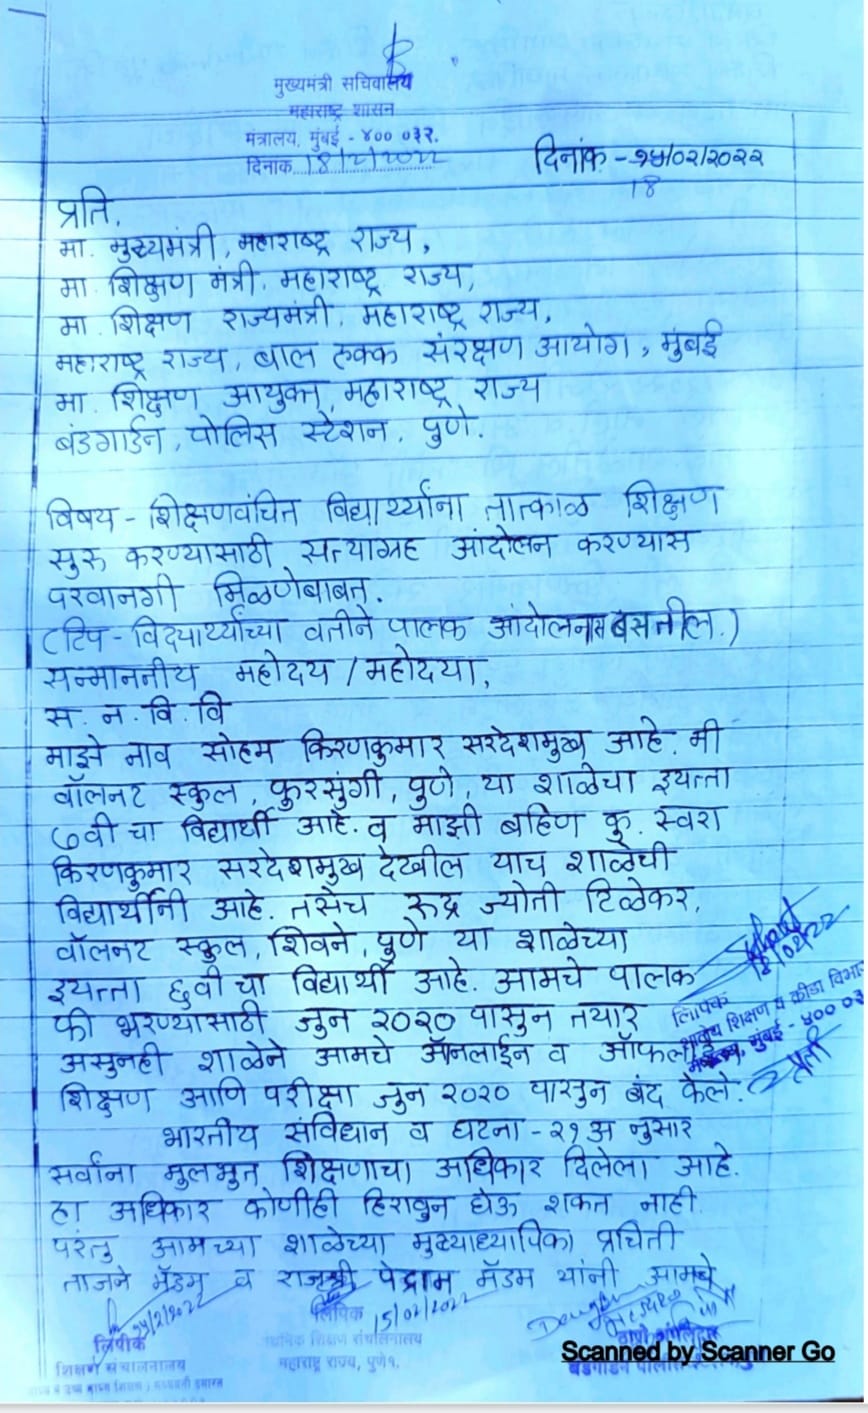 मुख्यमंत्री सचिवालय
महाराष्ट्र शासन
मंत्रालय, मुंबई - ४०० ०३२.
दिनांक 18/2/2022
दिनांक - १५/०२/२०२२
18
प्रति,
मा. मुख्यमंत्री, महाराष्ट्र राज्य,
मा. शिक्षण मंत्री, महाराष्ट्र राज्य,
मा. शिक्षण राज्यमंत्री, महाराष्ट्र राज्य,
महाराष्ट्र राज्य, बाल हक्क संरक्षण आयोग, मुंबई
मा. शिक्षण आयुक्त, महाराष्ट्र राज्य
बंडगार्डन, पोलिस स्टेशन, पुणे.
विषय - शिक्षणवंचित विद्यार्थ्यांना तात्काळ शिक्षण
सुरु करण्यासाठी सत्याग्रह आंदोलन करण्यास
परवानगी मिळणेबाबत.
(टिप - विद्यार्थ्यांच्या वतीने पालक आंदोलनास बसतील.)
सन्माननीय महोदय / महोदया,
स. न. वि. वि
माझे नाव सोहम किरणकुमार सरदेशमुख आहे. मी
वॉलनट स्कुल, फुरसुंगी, पुणे, या शाळेचा इयत्ता
७वी चा विद्यार्थी आहे. व माझी बहिण कु. स्वरा
किरणकुमार सरदेशमुख देखील याच शाळेची
विद्यार्थीनी आहे. तसेच रुद्र ज्योती टिळेकर,
वॉलनट स्कुल, शिवने, पुणे या शाळेच्या
इयत्ता ६वी चा विद्यार्थी आहे. आमचे पालक
फी भरण्यासाठी जुन २०२० पासुन तयार
असुनही शाळेने आमचे ऑनलाईन व ऑफलाईन
शिक्षण आणि परीक्षा जुन २०२० पासुन बंद केले.
भारतीय संविधान व घटना - २१अ नुसार
सर्वांना मुलभुत शिक्षणाचा अधिकार दिलेला आहे.
हा अधिकार कोणीही हिरावुन घेऊ शकत नाही.
परंतु आमच्या शाळेच्या मुख्याध्यापिका प्रचिती
ताजने मॅडम व राजश्री पेद्राम मॅडम यांनी आमचे
18/02/22
लिपिक
शालेय शिक्षण व क्रीडा विभाग
मंत्रालय, मुंबई - ४०० ०३२
लिपीक
शिक्षण संचालनालय
15/02/2022
लिपिक
प्राथमिक शिक्षण संचालनालय
महाराष्ट्र राज्य, पुणे१.
ठाणे अंमलदार
Scanned by Scanner Go